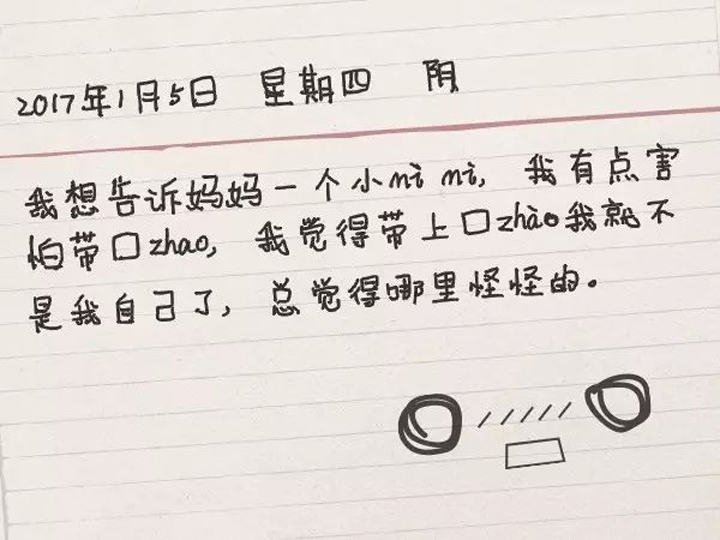 2017年1月5日 星期四 阴
我想告诉妈妈一个小mì mì, 我有点害
怕带口zhao, 我觉得带上口zhào我就不
是我自己了, 总觉得哪里怪怪的。